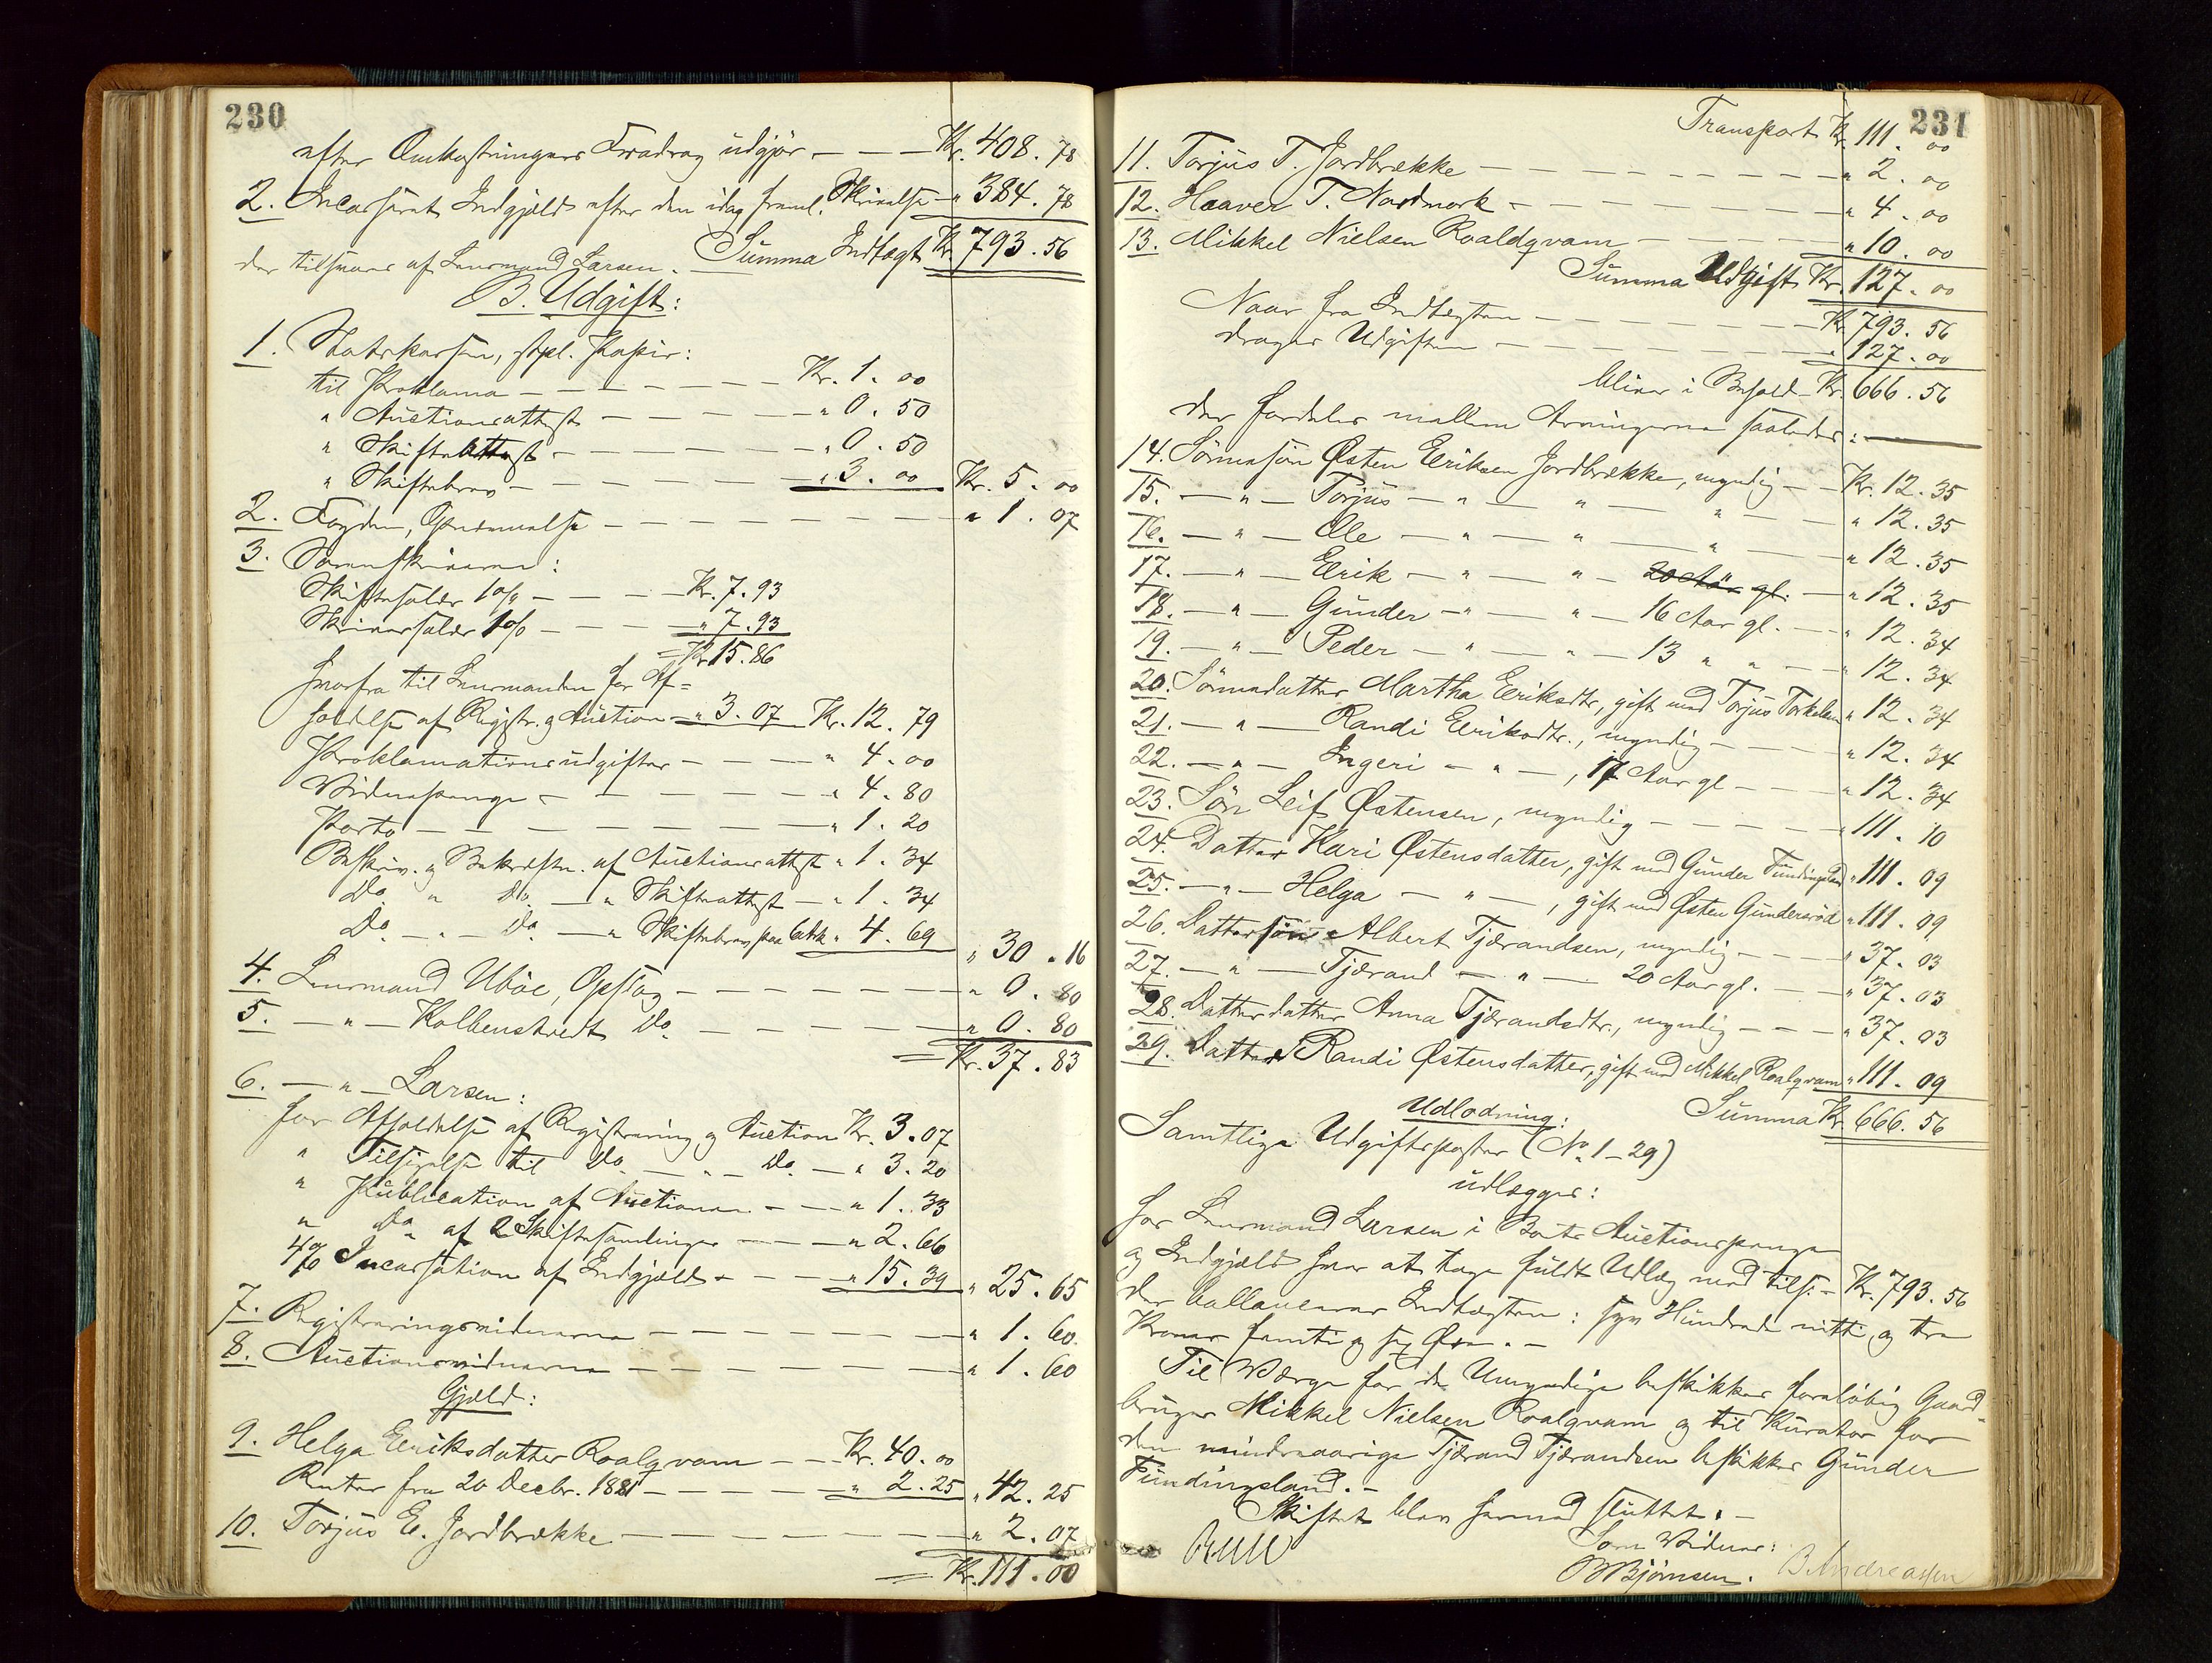 230
efter Omkostningers Fradrag udgjør — — — Kr. 408. 78
2. Incasseret Indgjæld efter den idag freml. Skrivelse — " 384. 78
der tilsvares af Lensmand Larsen. Summa Indtægt Kr 793. 56
B. Udgift:
1. Statskassen, stpl. Papir:
til Proklama — — — — — — Kr. 1. 00
" Auctionsattest — — — — — " 0. 50
" Skifteattest — — — — — " 0. 50
" Skiftebrev — — — — — " 3. 00 Kr. 5. 00
2. Fogden, — — — — — — — " 1. 07
3. Sorenskriveren:
Skiftesalær 1 % — — — Kr. 7. 93
Skriversalær 1 % — — — " 7. 93
= Kr. 15. 86
hvorfra til Lensmanden for Af=
holdelse af Registr. og Auction — " 3. 07 Kr. 12. 79
Proklamationsudgifter — — — — " 4. 00
Vidnepenge — — — — — — " 4. 80
Porto — — — — — — — " 1. 20
Beskriv. og Bekræftn. af Auctionsattest " 1. 34
Do. " Do. — " Skifteattest — " 1. 34
Do. — " — Do. — " Skiftebrev paa 6 Ark " 4. 69 " 30. 16
4. Lensmand Uböe, Opslag — — — — — — " 0. 80
5. — " — Kolbenstvedt Do. — — — — — " 0. 80
= Kr. 37. 83
6. — " — Larsen:
for Afholdelse af Registrering og Auction Kr. 3. 07
" Tilsigelse til Do. — " — Do. — " 3. 20
" Publication af Auctionen — — " 1. 33
" Do. af 2 Skiftesamlinger — — " 2. 66
4 % Incassation af Indgjæld — — — " 15. 39 " 25. 65
7. Registreringsvidnerne — — — — — — " 1. 60
8. Auctionsvidnerne — — — — — — " 1. 60
Gjæld:
9. Helga Eeriksdatter Roalqvam — — Kr. 40. 00
Renter fra 20 Decbr. 1881 — — — — " 2. 25 " 42. 25
10. Torjus E. Jordbrække — — — — — — " 2. 07
= Kr. 111. 00
231
Transport Kr. 111. 00
11. Torjus T. Jordbrække — — — — — — — — " 2. 00
12. Haaver T. Nordmork — — — — — — — " 4. 00
13. Mikkel Nielsen Roaldqvam — — — — — " 10. 00
Summa Udgift Kr. 127. 00
Naar fra Indtægten — — — — — — — Kr. 793. 56
drages Udgiften — — — — — — — " 127. 00
bliver i Behold Kr. 666. 56
der fordeles mellem Arvingerne saaledes: —
14. Sönnesön Østen Eeriksen Jordbrække, myndig — — Kr. 12. 35
15. — " — Torjus — " — " — " — " 12. 35
16. — " — Ole — " — " — " — " 12. 35
17. — " — Eerik — " — " — 20 Aar gl. — " 12. 35
18. — " — Gunder — " — " — 16 Aar gl. — " 12. 34
19. — " — Peder — " — " — 13 " " — " 12. 34
20. Sönnedatter Martha Eeriksdtr., gift med Torjus Torkelsen " 12. 34
21. — " — Randi Eeriksdtr., myndig — — — — " 12. 34
22. — " — Ingeri — " —, 17 Aar gl — — — " 12. 34
23. Sön Leif Østensen, myndig — — — — — " 111. 10
24. Datter Kari Østensdatter, gift med Gunder Fundingsland " 111. 09
25. — " — Helga — " —, gift med Østen Gundersröd " 111. 09
26. Dattersön Albert Tjærandsen, myndig — — — " 37. 03
27. — " — Tjærand — " — 20 Aar gl. — — " 37. 03
28. Datterdatter Anna Tjærandsdtr., myndig — — — " 37. 03
29. Datter Randi Østensdatter, gift med Mikkel Roalqvam " 111. 09
Summa Kr. 666. 56
Udlodning:
Samtlige Udgiftsposter (No. 1–29)
udlægges:
hos Lensmand Larsen i Boets Auctionspenge
og Indgjæld hvor at tage fuldt Udlæg med tils. — Kr. 793. 56
der ballancerer Indtægten: syv Hundrede nitti og tre
Kroner femti og sex Øre. —
Til Værge for de Umyndige beskikkes foreløbig Gaard-
bruger Mikkel Nielsen Roalqvam og til Kurator for
den mindreaarige Tjærand Tjærandsen beskikkes Gunder
Fundingsland. —
Skiftet blev hermed sluttet. —
Som Vidner:
B Björnsen. B. Andreassen